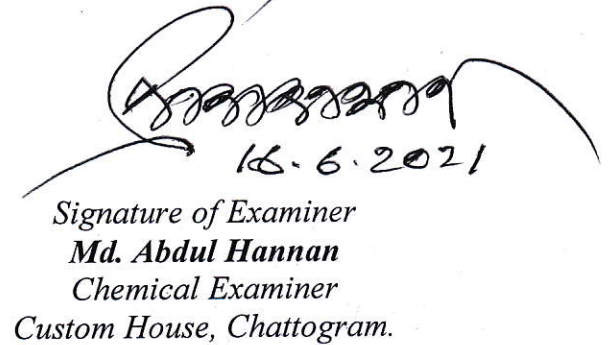 16.6.2021
Signature of Examiner
Md. Abdul Hannan
Chemical Examiner
Custom House, Chattogram.